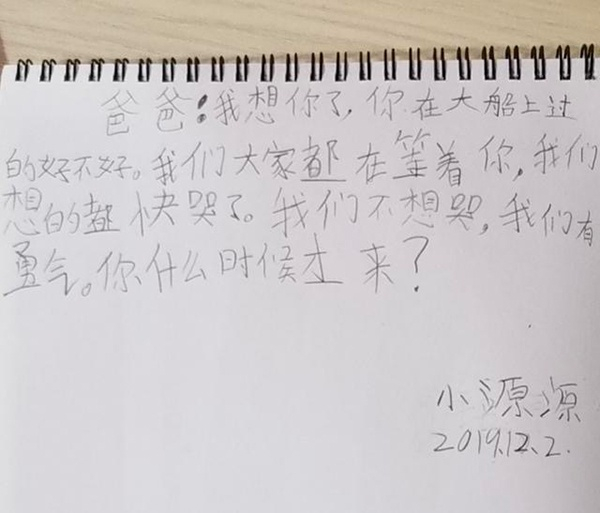 爸爸:我想你了,你在大船上过
的好不好。我们大家都在等着你,我们
想的都快哭了。我们不想哭,我们有
勇气。你什么时候才来?
小源源
2019.12.2.